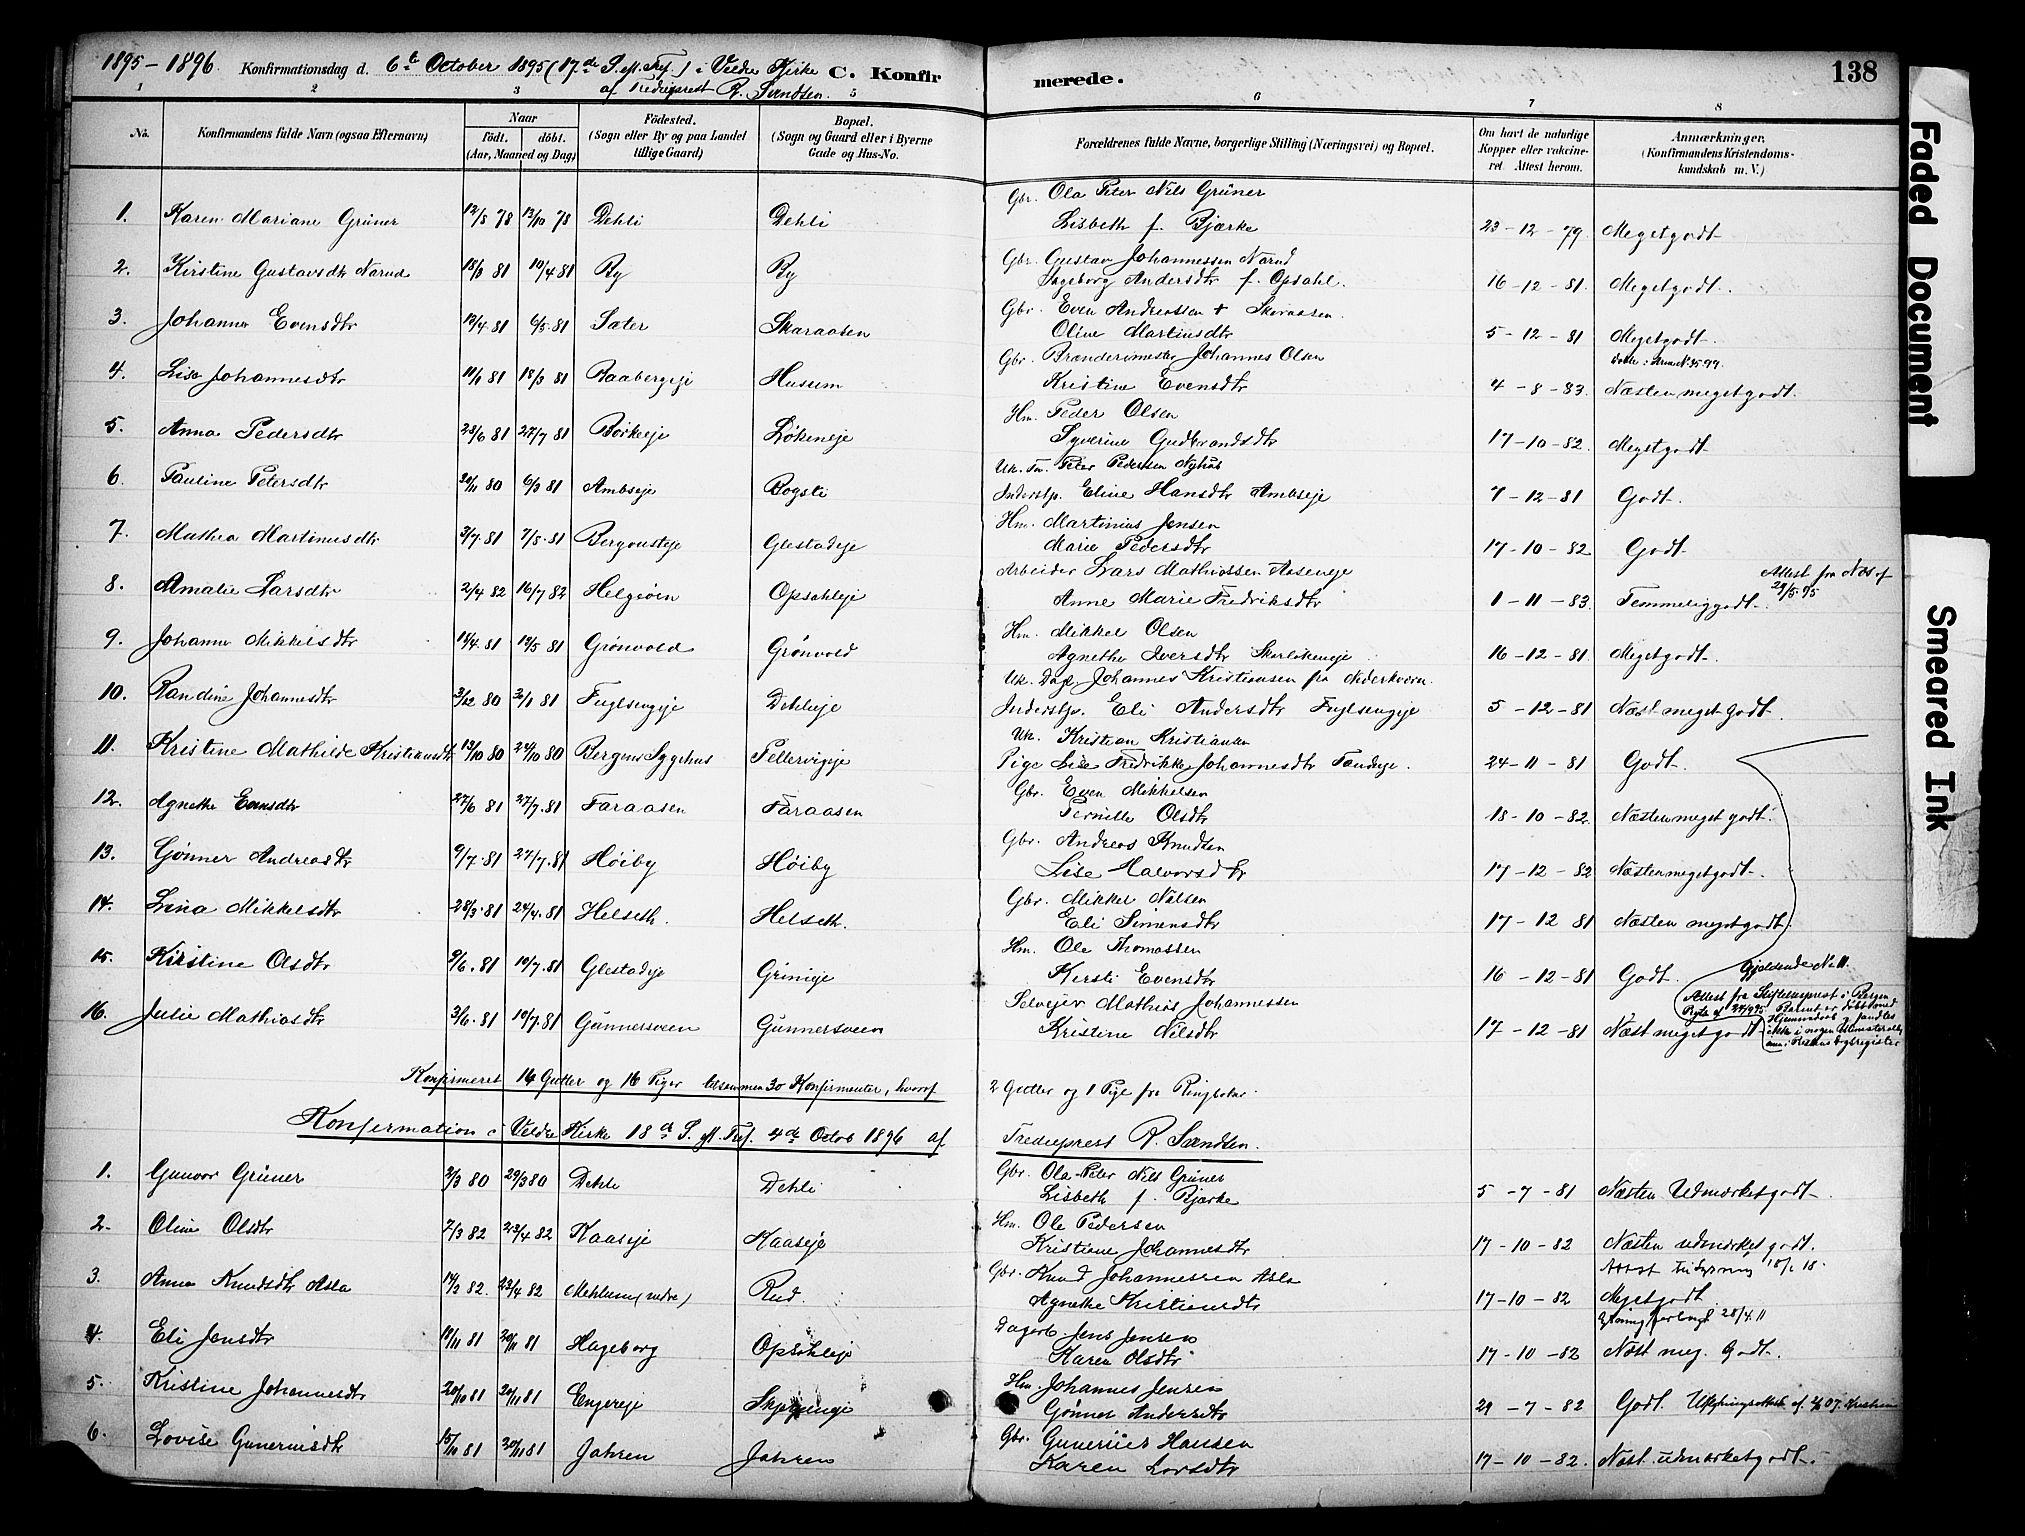 1895-1896 Konfirmationsdag d. 6te October 1895 (17de S. e. Tref.) i Veldre Kirke C. Konfirmerede. 138
af Frédiéprest R. Sandsen.
1 2 3 5 6 7 8
No. Konfirmandens fulde Navn (ogsaa Efternavn) Naar födt. döbt. (Aar, Maaned og Dag) Födested. (Sogn eller By og paa Landet tillige Gaard) Bopæl. (Sogn og Gaard eller i Byerne Gade og Hus-No. Forældrenes fulde Navne, borgerlige Stilling (Næringsvei) og Bopæl. Om havt de naturlige Kopper eller vaccineret. Attest herom. Anmærkninger. (Konfirmandens Kristendomskundskab m. V.)
Gbr. Ola Peter Nils Grüner
1. Karen Mariane Grüner 12/8 78 13/10 78 Dehli Dehli Lisbeth f. Bjærke 23-12-79 Megetgodt
Gbr. Gustav Johannessen Narud
2. Kirstine Gustavsdtr Narud 18/3 81 10/4 81 By By Ingeborg Andersdtr f. Opsahl. 16-12-81 Megetgodt.
Gbr. Even Andreassen + Skaraasen
3. Johanne Evensdtr 12/4 81 6/5 81 Sater Skaraasen Oline Martinusdtr 5-12-81 Megetgodt.
Gbr. Brænderimester Johannes Olsen
4. Lise Johannesdtr 11/1 81 18/3 81 Baabergeje Husum Kristine Evensdtr 4-8-83 Næsten megetgodt.
Hm. Peder Olsen
5. Anna Pedersdtr 23/6 81 27/7 81 Børkeeje Løkeneje Syverine Gudbrandsdtr 17-10-82 Megetgodt
Uk. Peter Pedersen Nyhus
6. Pauline Petersdtr 30/11 80 6/3 81 Ambseje Bogsti Inderstp. Eline Hansdtr Ambseje 7-12-81 Godt.
Hm. Martinius Jensen
7. Mathea Martinusdtr 3/7 81 7/8 81 Bergousteje Glestadeje Marie Pedersdtr 17-10-82 Godt
Arbeider Lars Mathiassen Aaseneje Attest fra Næs af 29/5 95
8. Amalie Larsdtr 2/4 82 16/7 82 Helgøen Opsahleje Anne Marie Fredriksdtr 1-11-83 Temmeliggodt.
Hm. Mikkel Olsen
9. Johanne Mikkelsdtr 14/4 81 14/5 81 Grønvold Grønvold Agnethe Iversdtr 16-12-81 Megetgodt.
Uk. Dagl. Johannes Kristiansen fra Nederkværn
10. Randine Johannesdtr 3/12 80 2/1 81 Fuglsengeje Dehlieje Inderstp. Eli Andersdtr Fuglsengeje 5-12-81 Næst meget godt.
Uk. Kristian Kristiansen
11. Kristine Mathilde Kristiansdtr 13/10 80 24/10 80 Bergens Sygehus Pellervigeje Pige Lise Fredrikke Johannesdtr Fandeje. 24-11-81 Godt.
Gbr. Even Mikkelsen
12. Agnethe Evensdtr 27/6 81 27/7 81 Faraasen Faraasen Pernille Olsdtr 18-10-82 Næsten meget godt.
Gbr. Andreas Knudsen
13. Gønner Andreasdtr 9/7 81 27/7 81 Høiby Høiby Lise Halvorsdtr 17-12-82 Næsten megetgodt.
Gbr. Mikkel Nilsen
14. Lina Mikkelsdtr 28/3 81 24/4 81 Helseth. Helseth. Eli Simensdtr 17-12 81 Næsten megetgodt.
Hm. Ole Thomassen
15. Kirstine Olsdtr 9/6 81 10/7 81 Glestadeje Grinieje Kersti Evensdtr 16-12-81 Godt. Gjældende No 11.
Selvejer Mathias Johannessen
16. Julie Mathiasdtr 3/6 81 10/7 81 Gunnersveen Gunnersveen Kristine Nilsdtr 17-12-81 Næst meget godt
Attest fra Stiftelsesprest i Bergen
Barnet er døbt med
Hjemmedaab & fandtes
ikke i nogen
Konfirmeret 14 Gutter og 16 Piger tilsammen 30 Konfirmanter, hvoraf 2 Gutter og 1 Pige fra Ringsaker.
Konfirmation i Veldre Kirke 18de S. e. Tref. 4de Octob 1896 af Frédiéprest R. Sandsen.
Gbr. Ola Peter Nils Grüner
1. Gunvor Grüner 2/3 80 29/3 80 Dehli Dehli Lisbeth f. Bjærke 5-7-81 Næsten Udmærketgodt.
Hm. Ole Pedersen
2. Oline Olsdtr 7/3 82 23/4 82 Kaaseje Kaaseje Kristiane Johannesdtr 17-10-82 Næsten udmærket godt.
Gbr. Knud Johannessen Asla Attest til
3. Anna Knudsdtr Asla 14/3 82. 23/4 82 Mehlum (nedre) Rud. Agnethe Kristiansdtr 17-10-82 Megetgodt
Dagarb. Jens Jensen 28/4 11
4. Eli Jensdtr 10/11 81 20/11 81 Hageborg Opsahleje Karen Olsdtr 17-10-82 Næst meg. Godt.
Hm. Johannes Jensen
5. Kristine Johannesdtr 20/10 81 20/11 81 Engereje Gønner Andersdtr 29-7-82 Godt
Gbr. Gunerius Hansen
6. Lovise Guneriusdtr 15/10 81 20/11 81 Jahren Jahren Karen Larsdtr 17-10-82. Næst. udmærketgodt.
Faded Document
Smeared Ink